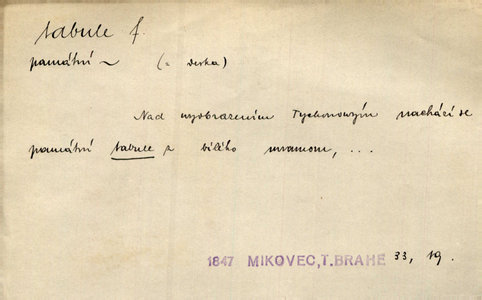 tabule f.
památní ~ (= deska)
Nad wyobrazením Tychonowým nachází se
památní tabule z bílého mramoru, ...
1847 MIKOVEC, T. BRAHE 33, 19.